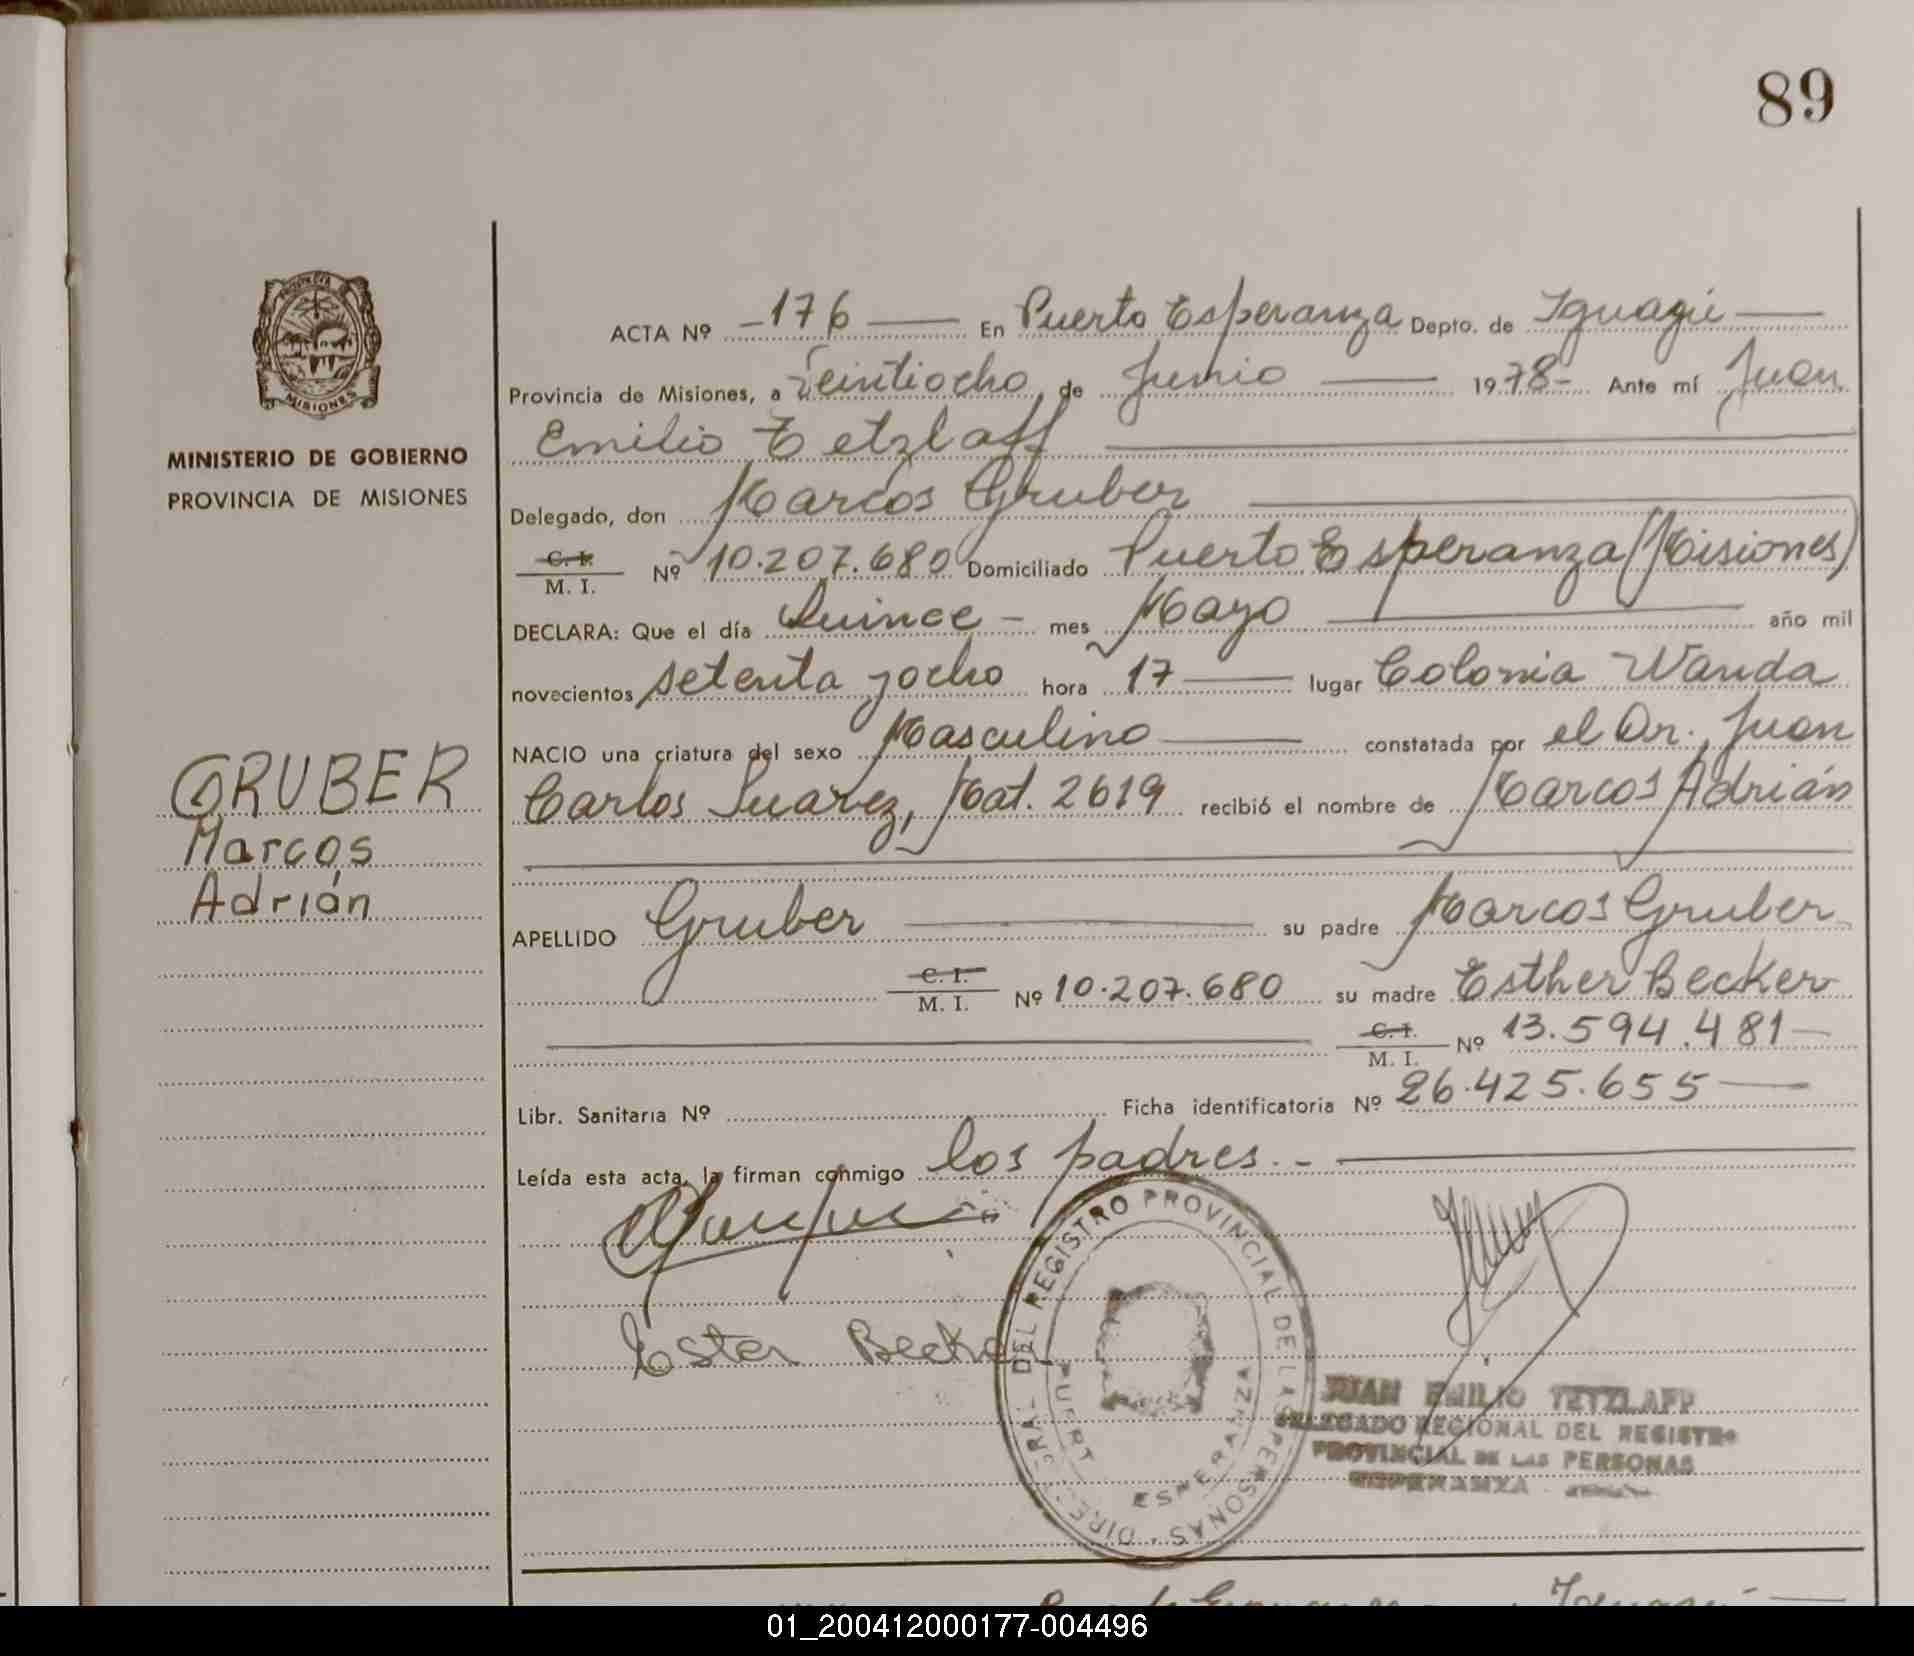 89
PROVINCIA DE
MISIONES
MINISTERIO DE GOBIERNO
PROVINCIA DE MISIONES
GRUBER
Marcos
Adrián
ACTA Nº -176 — En Puerto Esperanza Depto. de Iguazú —
Provincia de Misiones, a Veintiocho de Junio — 1978- Ante mí Juan
Emilio Tetzlaff —
Delegado, don Marcos Gruber —
C. I.
M. I. Nº 10.207.680 Domiciliado Puerto Esperanza (Misiones)
DECLARA: Que el día Quince - mes Mayo — año mil
novecientos setenta y ocho hora 17 — lugar Colonia Wanda
NACIO una criatura del sexo Masculino — constatada por el Dr. Juan
Carlos Suarez, Mat. 2619 recibió el nombre de Marcos Adrián
APELLIDO Gruber — su padre Marcos Gruber
C. I.
M. I. Nº 10.207.680 su madre Esther Becker
C. I.
M. I. Nº 13.594.481 —
Libr. Sanitaria Nº Ficha identificatoria Nº 26.425.655 —
Leída esta acta, la firman conmigo los padres.- —
Ester Becker
DEL REGISTRO PROVINCIAL DE LAS PERSONAS
ESPERANZA
JUAN EMILIO TETZLAFF
DELEGADO REGIONAL DEL REGISTRO
PROVINCIAL DE LAS PERSONAS
ESPERANZA
01_200412000177-004496